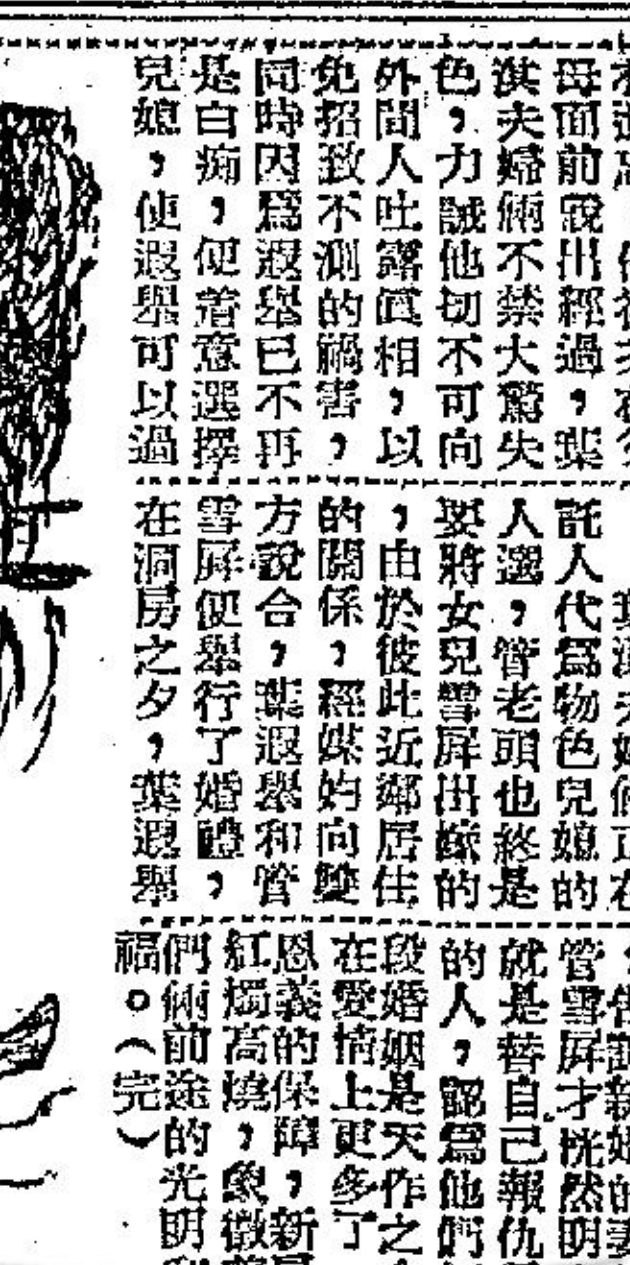 母面前說出經過，葉
淇夫婦倆不禁大驚失
色，力誡他切不可向
外間人吐露真相，以
免招致不測的禍害，
同時因爲遐舉已不再
是白痴，便着意選擇
兒媳，使遐舉可以過
託人代爲物色兒媳的
人選，管老頭也終是
要將女兒雪屏出嫁的
，由於彼此近鄰居住
的關係，經媒妁向雙
方說合，葉遐舉和管
雪屏便舉行了婚禮，
在洞房之夕，葉遐舉
管雪屏才恍然明
就是替自己報仇
的人，認爲他們
段婚姻是天作之
在愛情上更多了
恩義的保障，新
紅燭高燒，象徵
們倆前途的光明
福。（完）